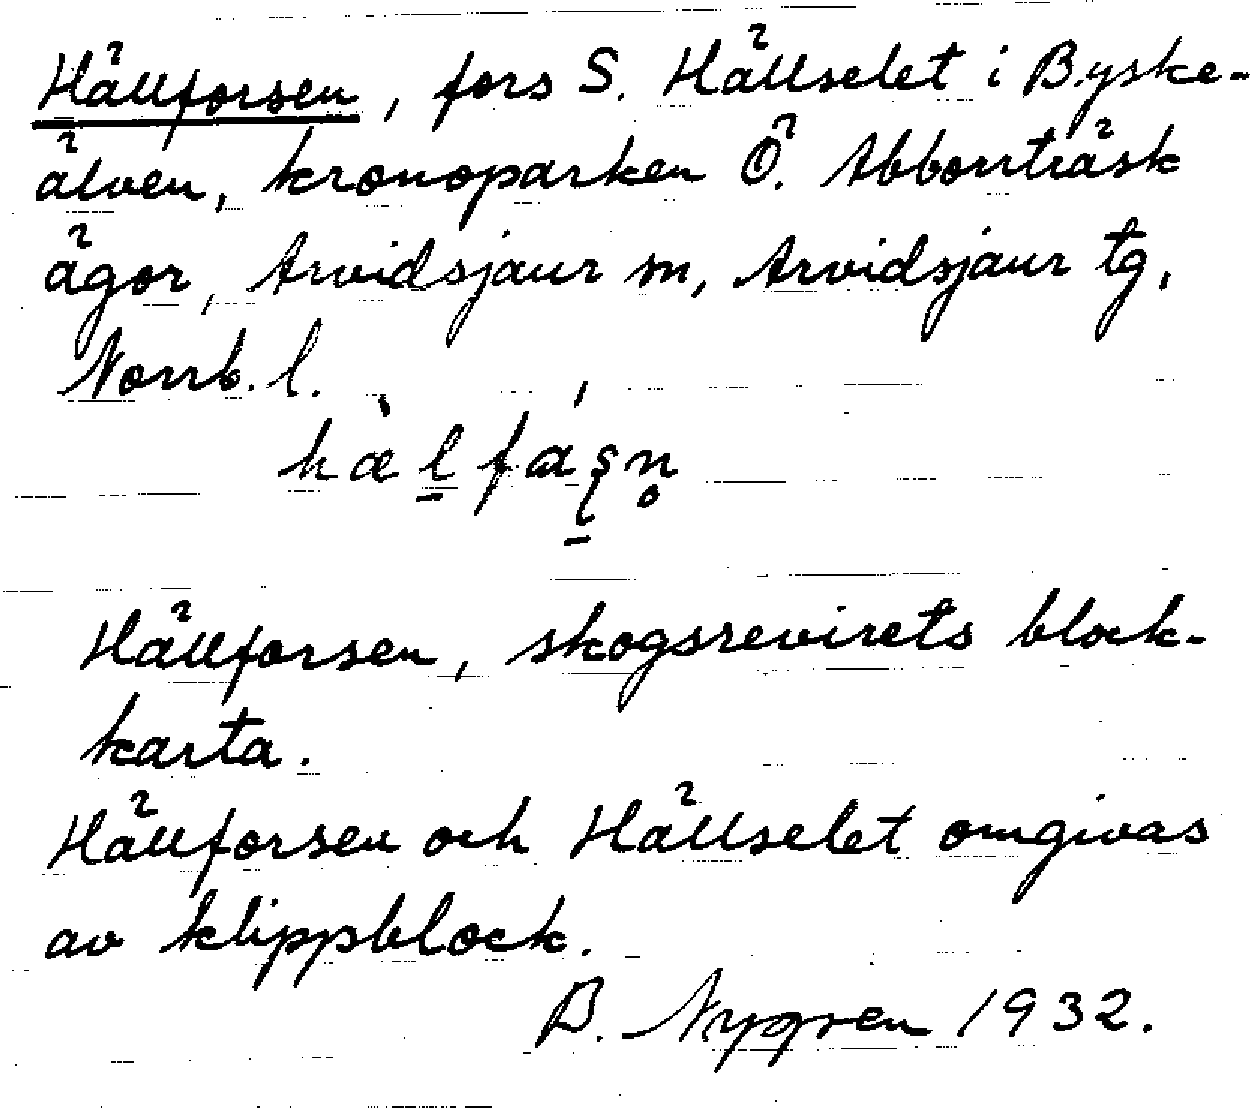 Hällforsen, fors S. Hällselet i Byske-
älven, kronoparken Ö. Abborrträsk
ägor, Arvidsjaur sn, Arvidsjaur tg,
Norrb. l.
hæ̀l̠fáʂn̥
Hällforsen, skogsrevirets block-
karta.
Hällforsen och Hällselet omgivas
av klippblock.
B. Nygren 1932.